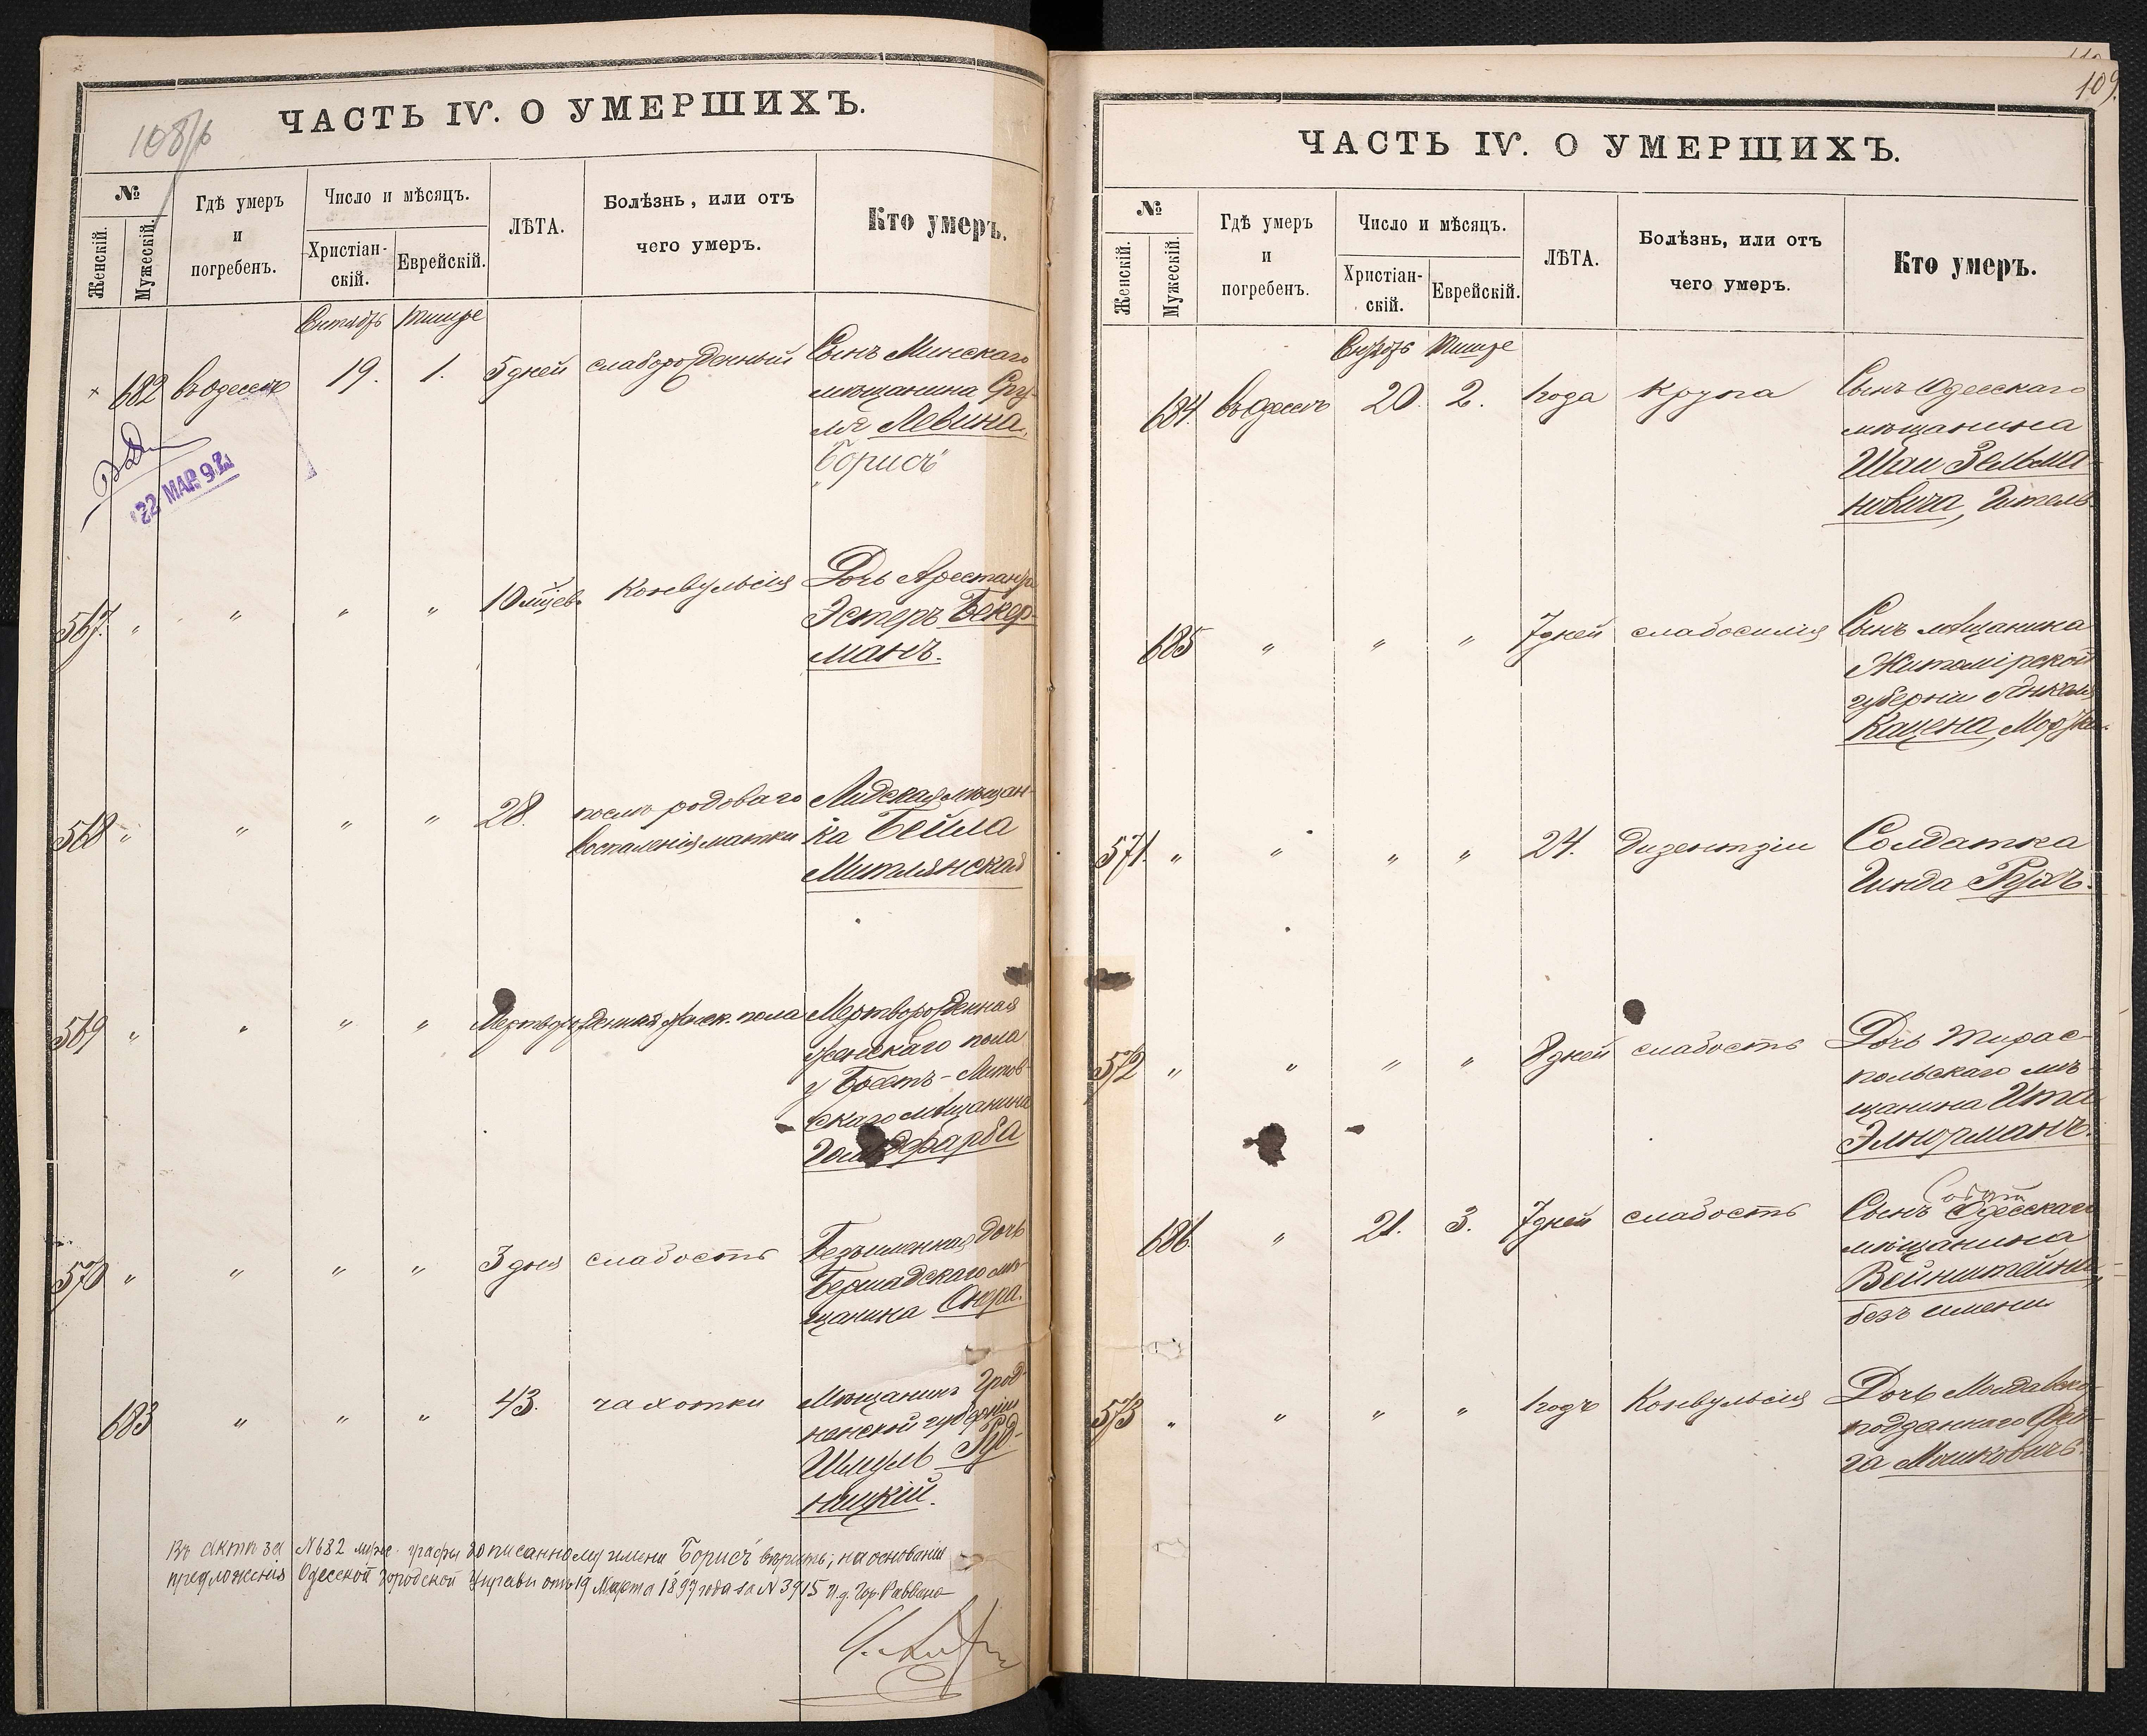 108/б
ЧАСТЬ IV. О УМЕРШИХЪ.
№
Женскій.
Мужескій.
Гдѣ умеръ
и
погребенъ.
Число и мѣсяцъ.
Христіан-
скій.
Еврейскій.
ЛѢТА.
Болѣзнь, или отъ
чего умеръ.
Кто умеръ.
Тишре
682 въ Одессѣ 19. 1. 5 дней слаборожденный Сынъ Минскаго
мѣщанина
Левина,
Борисъ
22 MAR 97
567. " " " " 10 мѣсец. Конвульсія Дочь Арестанта
Эстеръ Бекер-
манъ.
568 " " " " 28. послѣ родоваго Лидская мѣщан-
воспаленія матки ка Бейла
Митлянская
569 " " " " Мертворожденная женск. пола Мертворожденная
женскаго пола
у Брестъ-Литов-
скаго мѣщанина
Гольдфарба
570 " " " " 3 дня слабость Безъименная дочь
Бершадскаго мѣ-
щанина
683 " " " 43. чахотки Мѣщанинъ Грод-
ненской губерніи
Шмуль Руд-
ницкій.
Въ актѣ за №682 муж. графы дописанному имени "Борисъ" вѣрить, на основаніи
предложенія Одесской Городской Управы отъ 19 Марта 1897 года за N 3915 И.д. Гор. Раввина
109.
ЧАСТЬ IV. О УМЕРШИХЪ.
№
Женскій.
Мужескій.
Гдѣ умеръ
и
погребенъ.
Число и мѣсяцъ.
Христіан-
скій.
Еврейскій.
ЛѢТА.
Болѣзнь, или отъ
чего умеръ.
Кто умеръ.
Тишре
684. въ Одессѣ 20. 2. 1 года крупа Сынъ Одесскаго
мѣщанина
Шаи Зельма-
новича,
685 " " " 7 дней слабосилія Сынъ мѣщанина
Житомірской
губерніи Янкеля
Кацена,
571. " " " " 24. дизентріи Солдатка
Гинда
572 " " " " 8 дней слабость Дочь Тирас-
польскаго мѣ-
щанина Ита
686. " 21. 3. 7 дней слабость Сынъ Одесскаго
мѣщанина
Вейнштейна,
безъ имени
573 " " " " 1 годъ Конвульсія Дочь Молдавско-
подданнаго Фей-
га Мошковичъ.